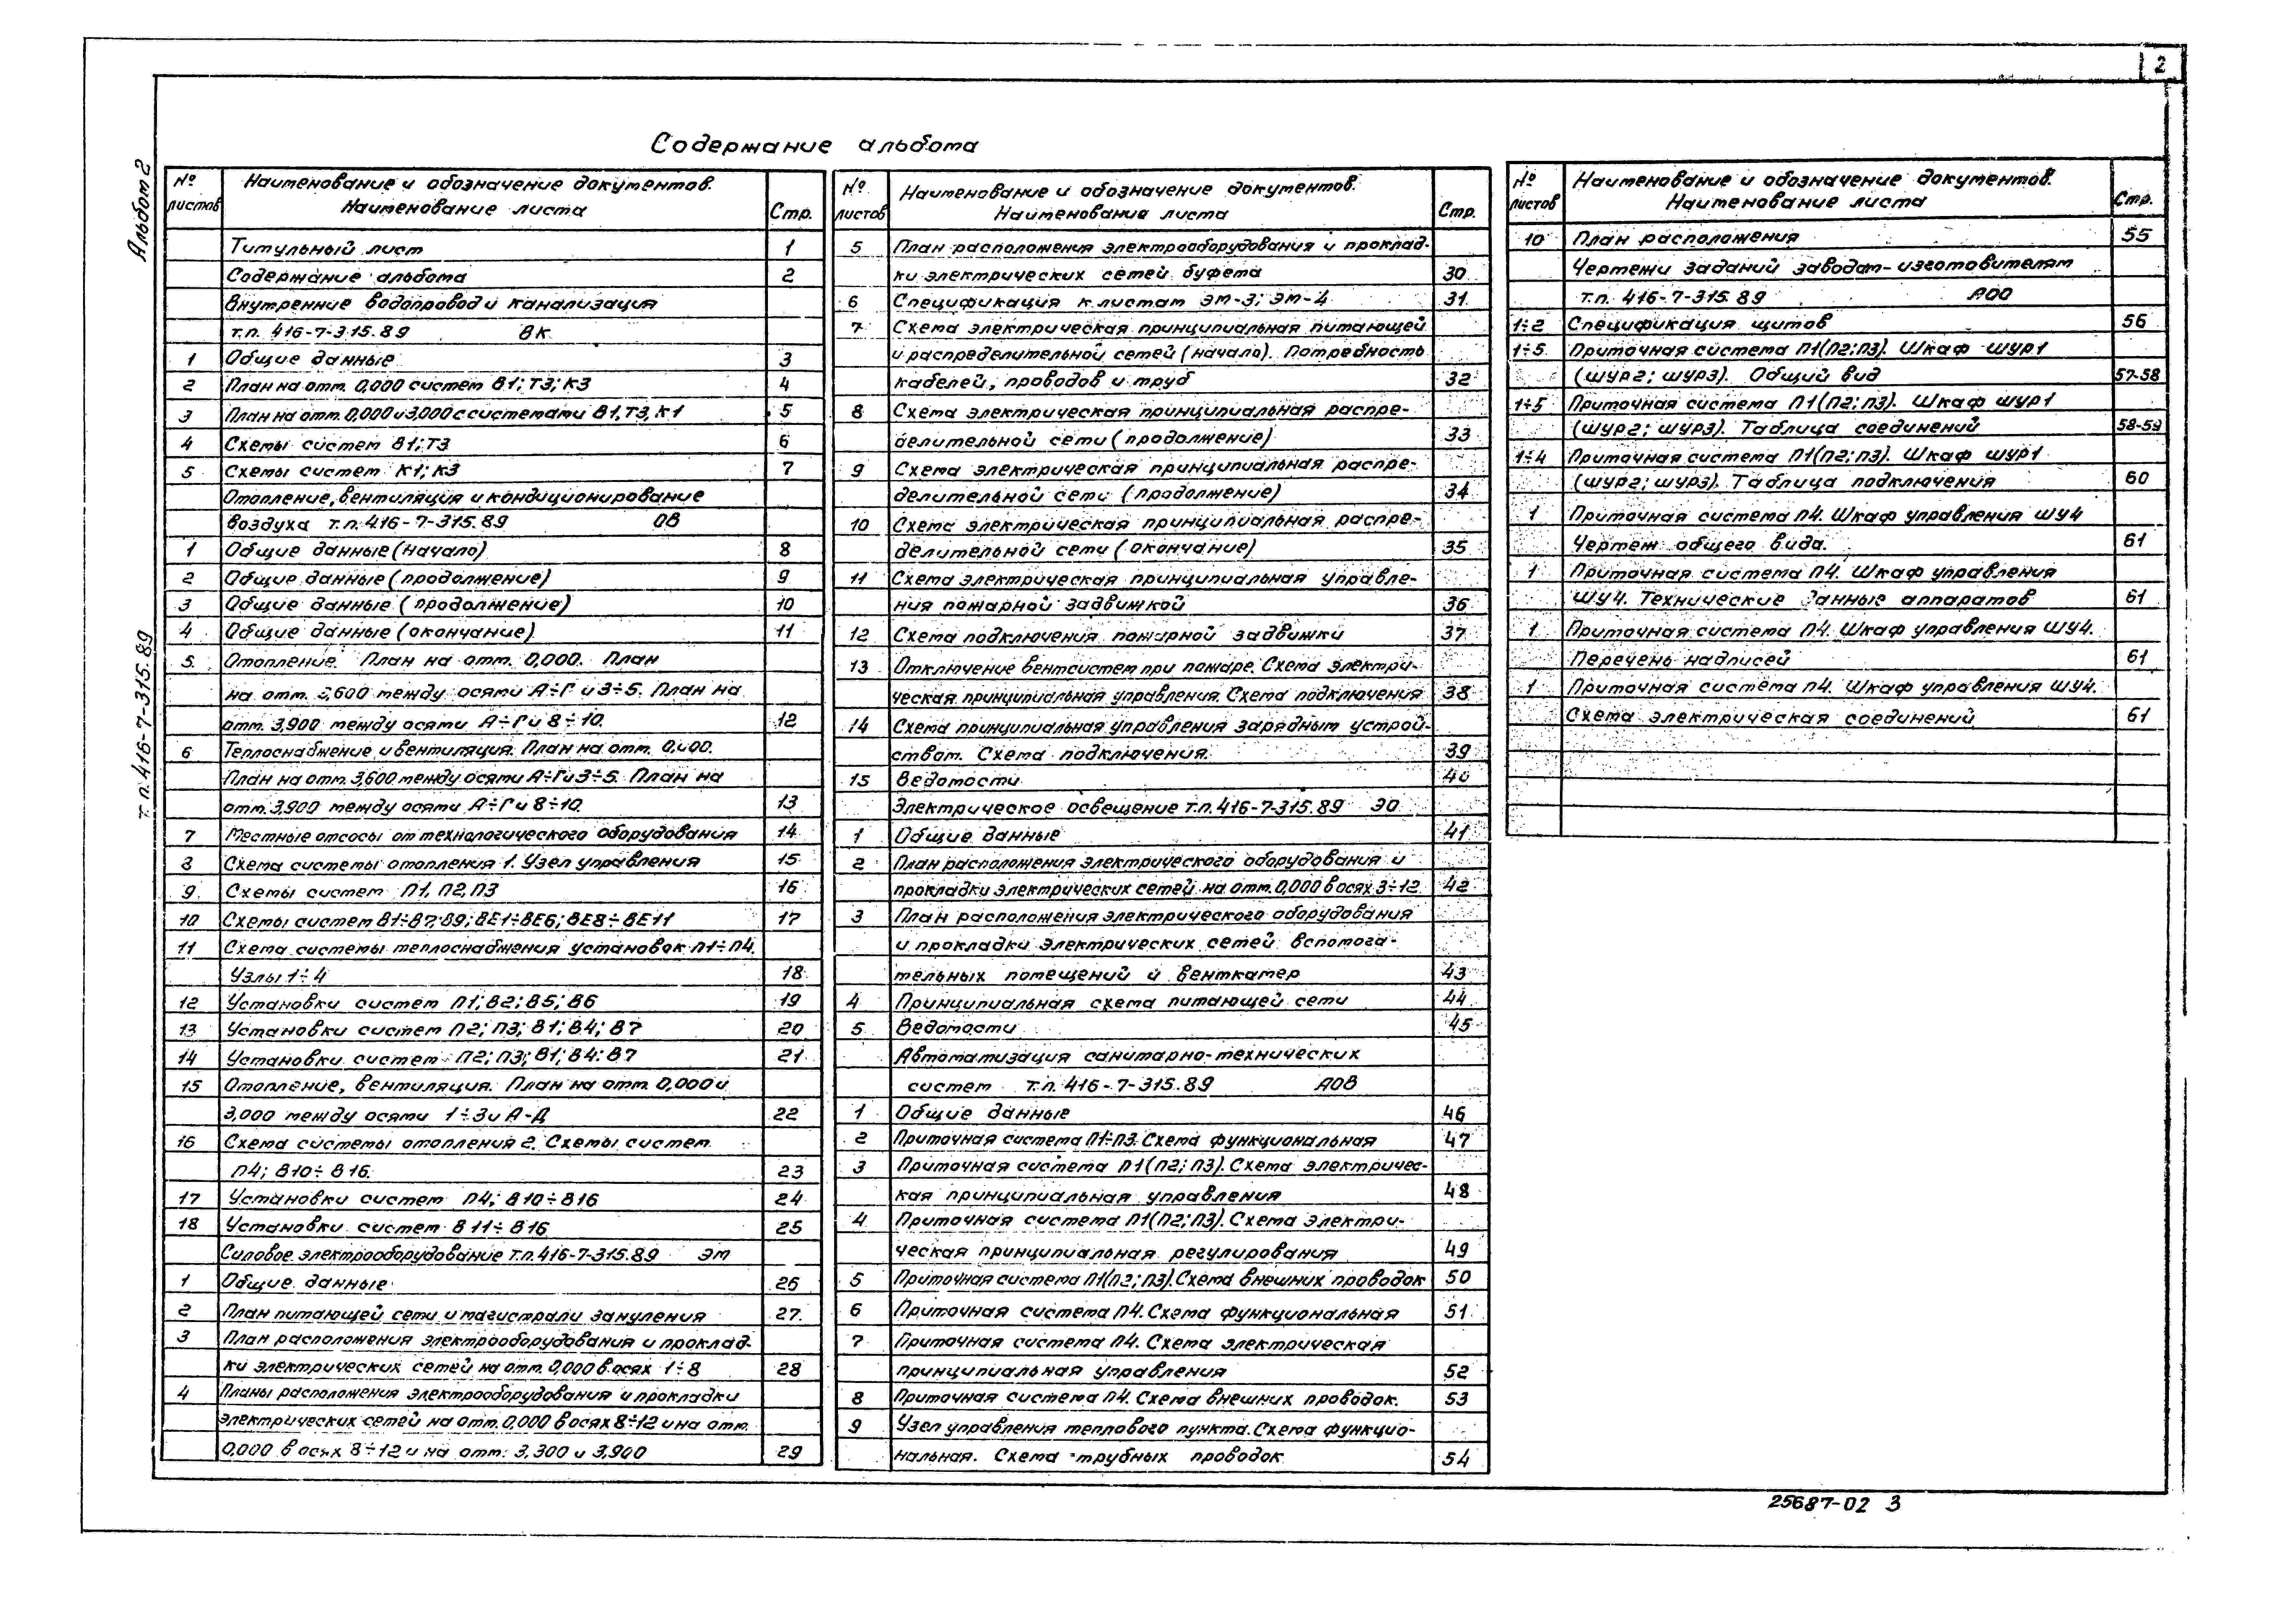 2
Содержание альбома
Альбом 2
т.п. 416-7-315.89
№ листов Наименование и обозначение документов. Наименование листа Стр.
Титульный лист 1
Содержание альбома 2
Внутренние водопровод и канализация
т.п. 416-7-315.89 ВК
1 Общие данные 3
2 План на отм. 0,000 систем В1; Т3; К3 4
3 План на отм. 0,000 и 3,000 с системами В1, Т3, К1 5
4 Схемы систем В1; Т3 6
5 Схемы систем К1; К3 7
Отопление, вентиляция и кондиционирование
воздуха т.п. 416-7-315.89 ОВ
1 Общие данные (начало) 8
2 Общие данные (продолжение) 9
3 Общие данные (продолжение) 10
4 Общие данные (окончание) 11
5 Отопление. План на отм. 0,000. План
на отм. 3,600 между осями А÷Г и 3÷5. План на
отм. 3,900 между осями А÷Г и 8÷10. 12
6 Теплоснабжение и вентиляция. План на отм. 0,000.
План на отм. 3,600 между осями А÷Г и 3÷5. План на
отм. 3,900 между осями А÷Г и 8÷10. 13
7 Местные отсосы от технологического оборудования 14
8 Схема системы отопления 1. Узел управления 15
9 Схемы систем П1, П2, П3 16
10 Схемы систем В1÷В7; В9; ВЕ1÷ВЕ6; ВЕ8÷ВЕ11 17
11 Схема системы теплоснабжения установок П1÷П4.
Узлы 1÷4 18
12 Установки систем П1; В2; В5; В6 19
13 Установки систем П2; П3; В1; В4; В7 20
14 Установки систем П2; П3; В1; В4; В7 21
15 Отопление, вентиляция. План на отм. 0,000 и
3,000 между осями 1÷3 и А-Д 22
16 Схема системы отопления 2. Схемы систем
П4; В10÷В16. 23
17 Установки систем П4; В10÷В16 24
18 Установки систем В11÷В16 25
Силовое электрооборудование т.п. 416-7-315.89 ЭМ
1 Общие данные 26
2 План питающей сети и магистрали зануления 27
3 План расположения электрооборудования и проклад-
ки электрических сетей на отм. 0,000 в осях 1÷8 28
4 Планы расположения электрооборудования и прокладки
электрических сетей на отм. 0,000 в осях 8÷12 и на отм.
0,000 в осях 8÷12 и на отм. 3,300 и 3,900 29
№ листов Наименование и обозначение документов. Наименование листа Стр.
5 План расположения электрооборудования и проклад-
ки электрических сетей буфета 30
6 Спецификация к листам ЭМ-3; ЭМ-4 31
7 Схема электрическая принципиальная питающей
и распределительной сетей (начало). Потребность
кабелей, проводов и труб 32
8 Схема электрическая принципиальная распре-
делительной сети (продолжение) 33
9 Схема электрическая принципиальная распре-
делительной сети (продолжение) 34
10 Схема электрическая принципиальная распре-
делительной сети (окончание) 35
11 Схема электрическая принципиальная управле-
ния пожарной задвижкой 36
12 Схема подключения пожарной задвижки 37
13 Отключение вентсистем при пожаре. Схема электри-
ческая принципиальная управления. Схема подключения 38
14 Схема принципиальная управления зарядным устрой-
ством. Схема подключения. 39
15 Ведомости 40
Электрическое освещение т.п. 416-7-315.89 ЭО
1 Общие данные 41
2 План расположения электрического оборудования и
прокладки электрических сетей на отм. 0,000 в осях 3÷12 42
3 План расположения электрического оборудования
и прокладки электрических сетей вспомога-
тельных помещений и венткамер 43
4 Принципиальная схема питающей сети 44
5 Ведомости 45
Автоматизация санитарно-технических
систем т.п. 416-7-315.89 АОВ
1 Общие данные 46
2 Приточная система П1÷П3. Схема функциональная 47
3 Приточная система П1(П2; П3). Схема электричес-
кая принципиальная управления 48
4 Приточная система П1(П2; П3). Схема электри-
ческая принципиальная регулирования 49
5 Приточная система П1(П2; П3). Схема внешних проводок 50
6 Приточная система П4. Схема функциональная 51
7 Приточная система П4. Схема электрическая
принципиальная управления 52
8 Приточная система П4. Схема внешних проводок. 53
9 Узел управления теплового пункта. Схема функцио-
нальная. Схема трубных проводок 54
№ листов Наименование и обозначение документов. Наименование листа Стр.
10 План расположения 55
Чертежи заданий заводам-изготовителям
т.п. 416-7-315.89 АОО
1÷2 Спецификация щитов 56
1÷5 Приточная система П1(П2; П3). Шкаф ШУР1
(ШУР2; ШУР3). Общий вид 57-58
1÷5 Приточная система П1(П2; П3). Шкаф ШУР1
(ШУР2; ШУР3). Таблица соединений 58-59
1÷4 Приточная система П1(П2; П3). Шкаф ШУР1
(ШУР2; ШУР3). Таблица подключения 60
1 Приточная система П4. Шкаф управления ШУ4
Чертеж общего вида. 61
1 Приточная система П4. Шкаф управления
ШУ4. Технические данные аппаратов 61
1 Приточная система П4. Шкаф управления ШУ4.
Перечень надписей 61
1 Приточная система П4. Шкаф управления ШУ4.
Схема электрическая соединений 61
25687-02 3